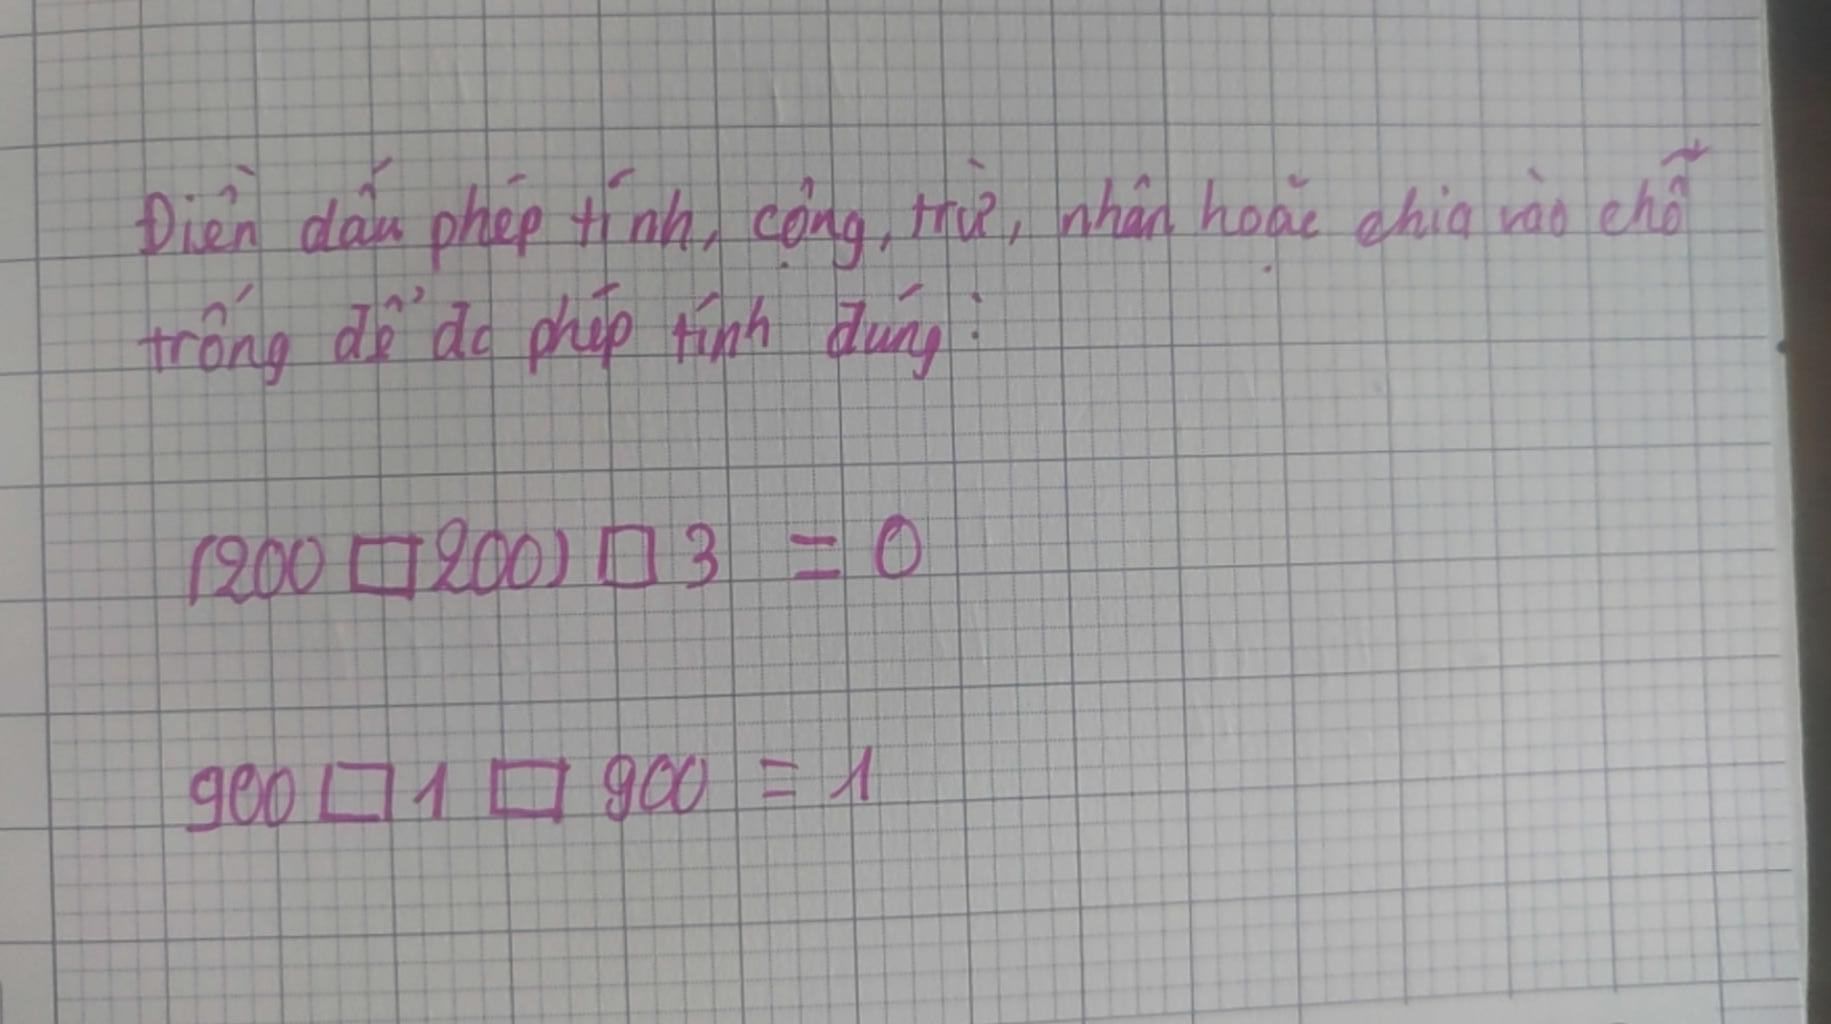 Điền dấu phép tính, cộng, trừ, nhân hoặc chia vào chỗ
trống để đc phép tính đúng:
(200 □ 200) □ 3 = 0
900 □ 1 □ 900 = 1